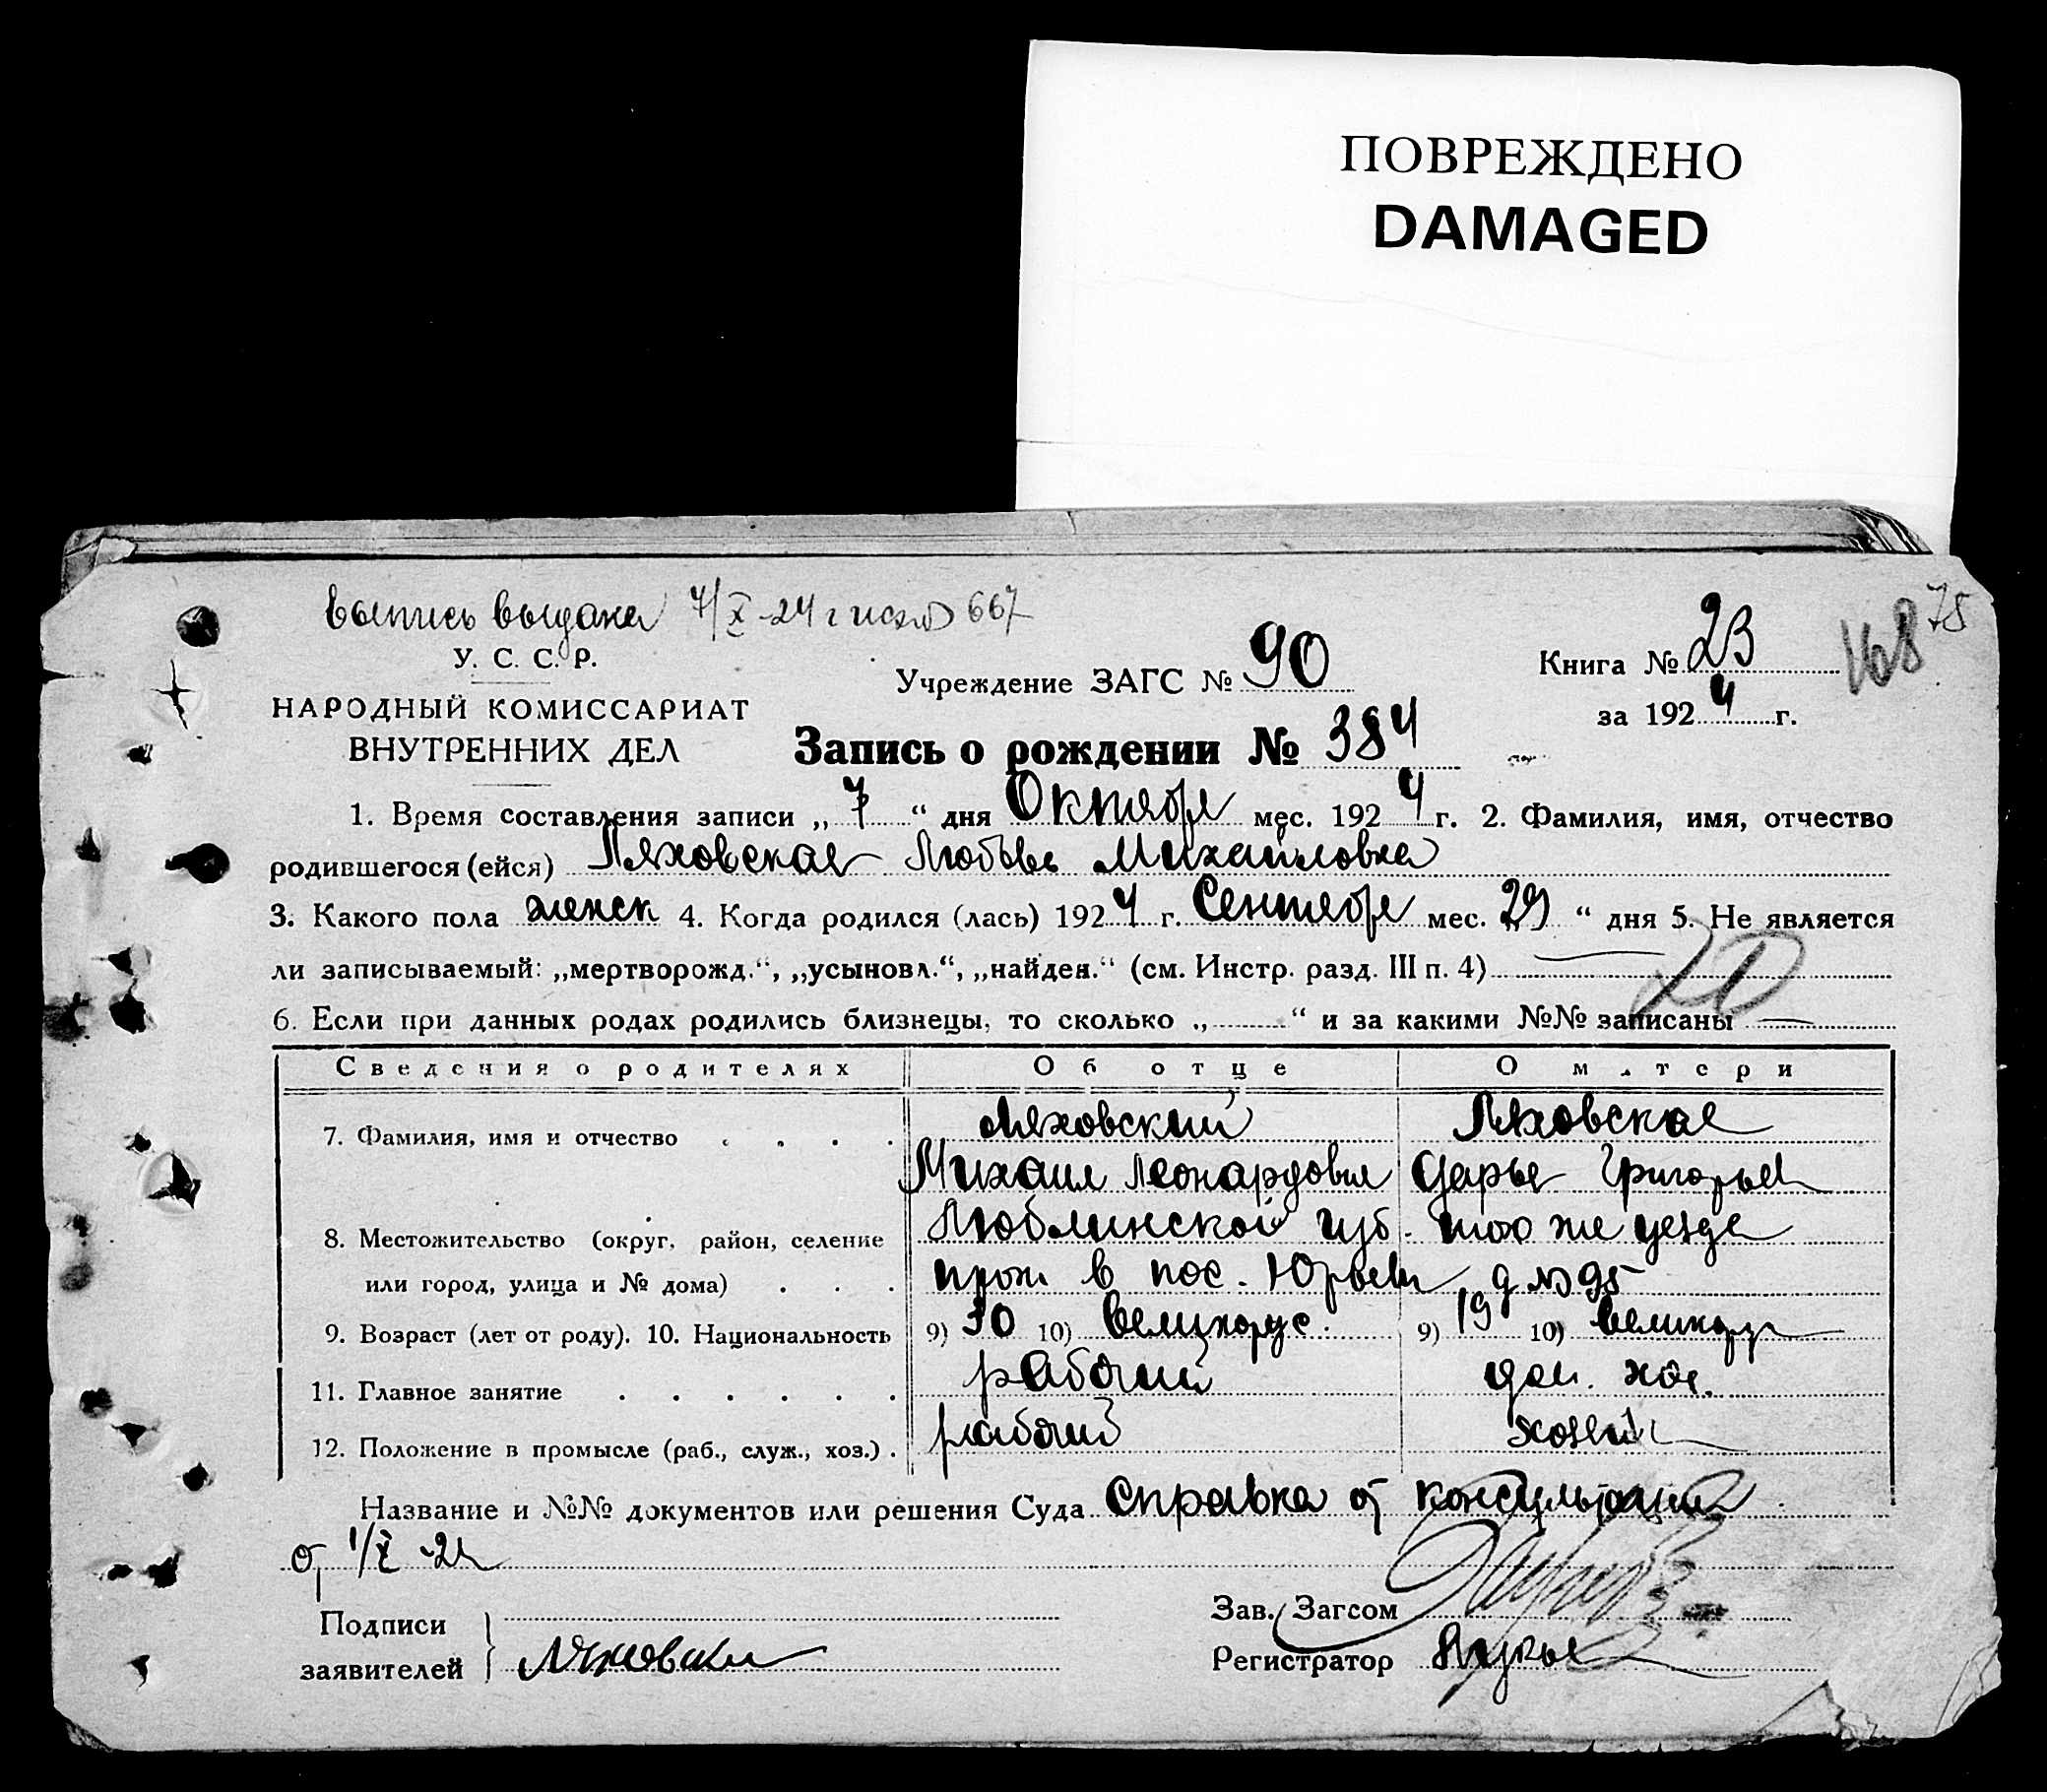 ПОВРЕЖДЕНО
DAMAGED
Выпись выдана 7/X-24 г исход 667
75
168
У. С. С. Р.
НАРОДНЫЙ КОМИССАРИАТ
ВНУТРЕННИХ ДЕЛ
Учреждение ЗАГС № 90
Книга № 23
за 1924 г.
Запись о рождении № 384
1. Время составления записи „7“ дня Октября мес. 1924 г. 2. Фамилия, имя, отчество
родившегося (ейся) Ляховская Любовь Михайловна
3. Какого пола женск 4. Когда родился (лась) 1924 г. Сентября мес. 29 “ дня 5. Не является
ли записываемый: „мертворожд.“, „усыновл.“, „найден.“ (см. Инстр. разд. III п. 4)
6. Если при данных родах родились близнецы, то сколько „ “ и за какими №№ записаны
Сведения о родителях Об отце О матери
7. Фамилия, имя и отчество Ляховский Ляховская
Михаил Леонардович Дарья Григорьев
8. Местожительство (округ, район, селение Люблинской губ. того же уезда
или город, улица и № дома) прож в пос. Юрьевк д № 95
9. Возраст (лет от роду). 10. Национальность 9) 30 10) великорус. 9) 19 10) великорус
11. Главное занятие рабочий дом. хоз.
12. Положение в промысле (раб., служ., хоз.) рабочий
Название и №№ документов или решения Суда Справка от консультации
от 1/X-24
Подписи
заявителей Ляховский
Зав. Загсом
Регистратор